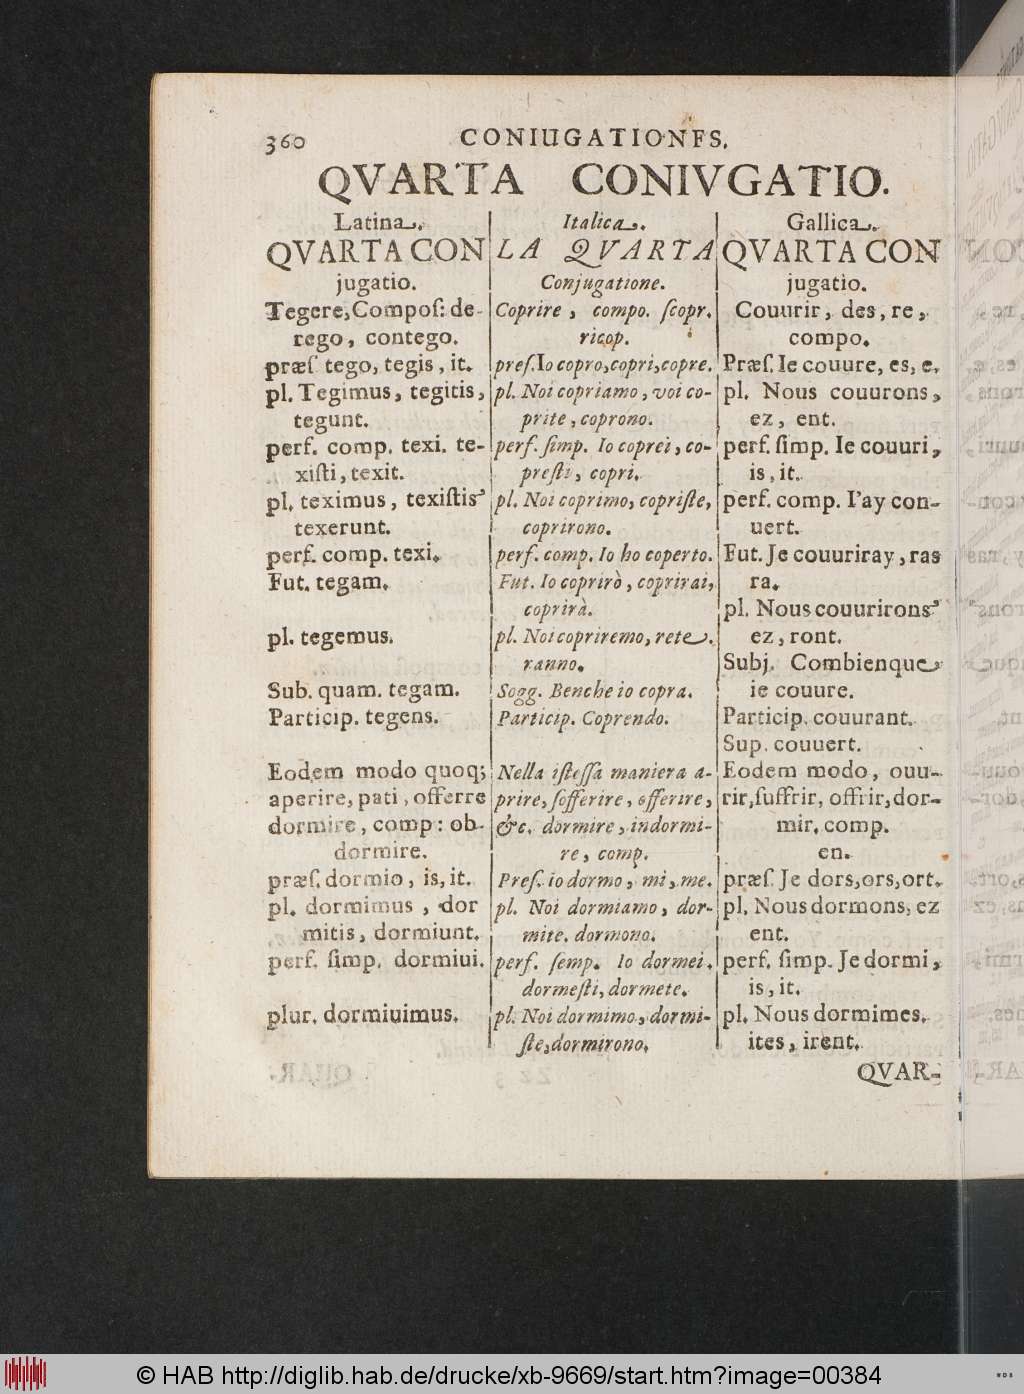 360 CONIUGATIONFS.
QVARTA CONIVGATIO.
Latina.
QVARTA CON
jugatio.
Tegere, Compoſ: de-
rego, contego.
præſ tego, tegis, it.
pl. Tegimus, tegitis,
tegunt.
perf. comp. texi. te-
xiſti, texit.
pl. teximus, texiſtis
texerunt.
perf. comp. texi.
Fut. tegam.
pl. tegemus.
Sub. quam. tegam.
Particip. tegens.
Eodem modo quoq;
aperire, pati, offerre
dormire, comp: ob-
dormire.
præſ. dormio, is, it.
pl. dormimus, dor
mitis, dormiunt.
perf. ſimp. dormiui.
plur. dormiuimus.
Italica.
LA QVARTA
Conjugatione.
Coprire, compo. ſcopr.
ricop.
preſ. Io copro, copri, copre.
pl. Noi copriamo, voi co-
prite, coprono.
perf. ſimp. Io coprei, co-
preſti, coprì.
pl. Noi coprimo, copriſte,
coprirono.
perf. comp. Io ho coperto.
Fut. Io coprirò, coprirai,
coprirà.
pl. Noi copriremo, rete.
ranno.
Sogg. Benche io copra.
Particip. Coprendo.
Nella iſteſſa maniera a-
prire, ſofferire, offerire,
&c. dormire, indormi-
re, comp.
Preſ. io dormo, mi, me.
pl. Noi dormiamo, dor-
mite. dormono.
perf. ſemp. Io dormei.
dormeſti, dormete.
pl. Noi dormimo, dormi-
ſte, dormirono.
Gallica.
QVARTA CON
jugatio.
Couurir, des, re,
compo.
Præſ. Ie couure, es, e.
pl. Nous couurons,
ez, ent.
perf. ſimp. Ie couuri,
is, it.
perf. comp. I'ay con-
uert.
Fut. Je couuriray, ras
ra.
pl. Nous couurirons
ez, ront.
Subj. Combienque
ie couure.
Particip. couurant.
Sup. couuert.
Eodem modo, ouu-
rir, ſuffrir, offrir, dor-
mir. comp.
en.
præſ. Je dors, ors, ort.
pl. Nous dormons, ez
ent.
perf. ſimp. Je dormi,
is, it.
pl. Nous dormimes.
ites, irent.
QVAR-
© HAB http://diglib.hab.de/drucke/xb-9669/start.htm?image=00384